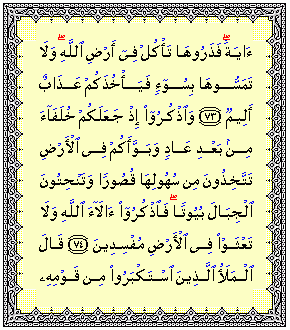 ءَايَةٗۖ فَذَرُوهَا تَأۡكُلۡ فِيٓ أَرۡضِ ٱللَّهِۖ وَلَا
تَمَسُّوهَا بِسُوٓءٖ فَيَأۡخُذَكُمۡ عَذَابٌ
أَلِيمٞ ٧٣ وَٱذۡكُرُوٓاْ إِذۡ جَعَلَكُمۡ خُلَفَآءَ
مِنۢ بَعۡدِ عَادٖ وَبَوَّأَكُمۡ فِي ٱلۡأَرۡضِ
تَتَّخِذُونَ مِن سُهُولِهَا قُصُورٗا وَتَنۡحِتُونَ
ٱلۡجِبَالَ بُيُوتٗاۖ فَٱذۡكُرُوٓاْ ءَالَآءَ ٱللَّهِ وَلَا
تَعۡثَوۡاْ فِي ٱلۡأَرۡضِ مُفۡسِدِينَ ٧٤ قَالَ
ٱلۡمَلَأُ ٱلَّذِينَ ٱسۡتَكۡبَرُواْ مِن قَوۡمِهِۦ